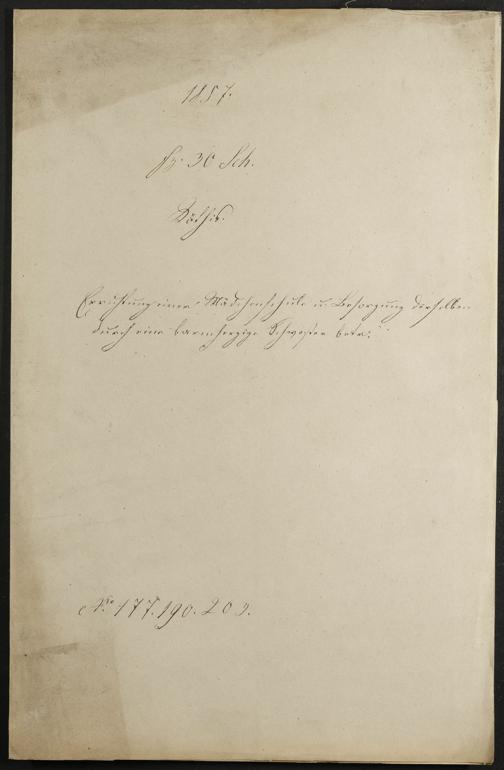 1857.
fz. 30 Sch.
Röthis.
Errichtung einer Mädchenschule u. Besorgung derselben
durch eine barmherzige Schwester betr.
No 177. 190. 202.